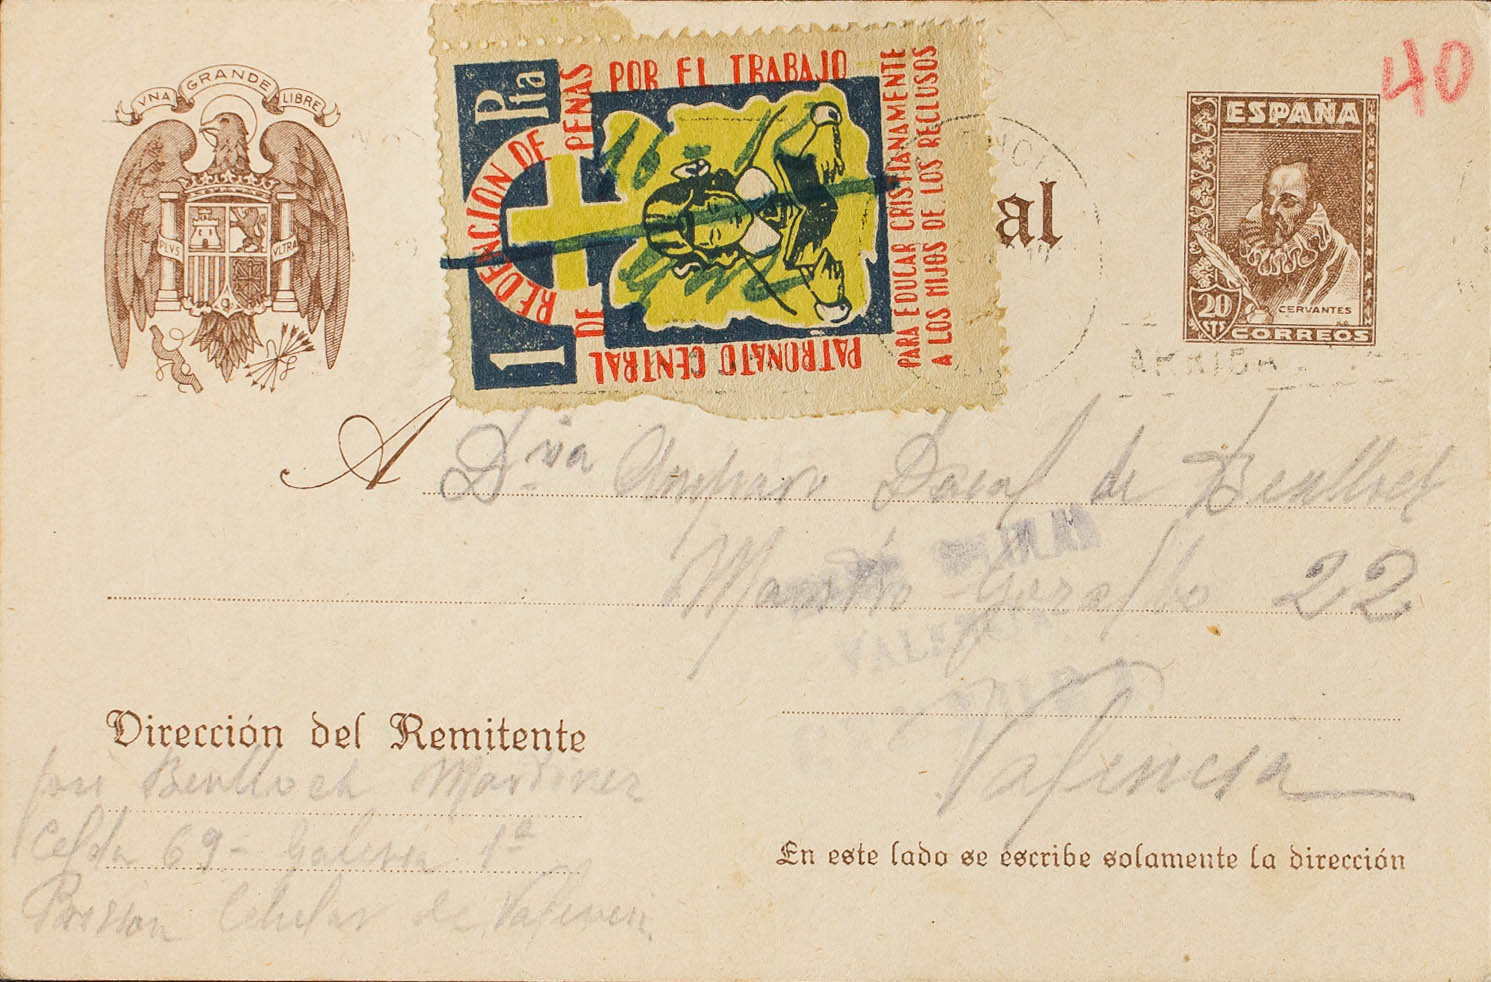 VNA GRANDE LIBRE
PLVS VLTRA
1 Pta
REDENCION DE PENAS POR EL TRABAJO
PATRONATO CENTRAL DE
PARA EDUCAR CRISTIANAMENTE
A LOS HIJOS DE LOS RECLUSOS
al
40
ESPAÑA
CERVANTES
20
CORREOS
ARRIBA
A Dña Amparo de Benlloch
Maestro Gozalbo 22
VALENCIA
Valencia
Dirección del Remitente
José Benlloch Martinez
Celda 69 - Galeria 1ª
Prision Celular de Valencia
En este lado se escribe solamente la dirección